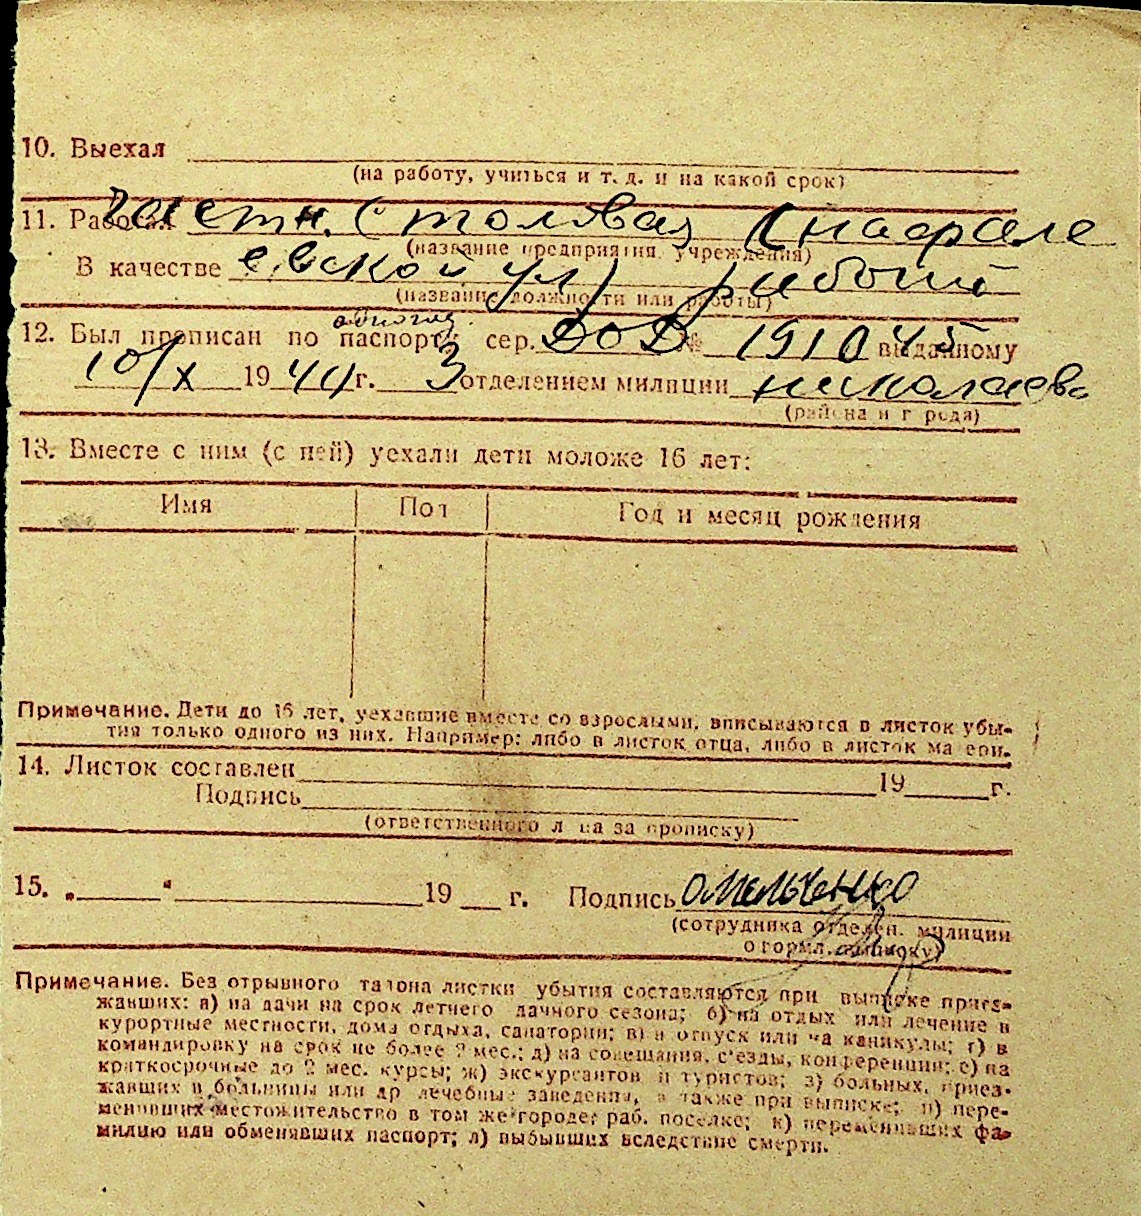 10. Выехал
(на работу, учиться и т. д. и на какой срок)
11. Работал частн. столовая (на фале
(название предприятия, учреждения)
В качестве евской ул) рабочий
(название должности или работы)
одногод.
12. Был прописан по паспорту сер. ДОД № 191045 выданному
10/X 1941 г. 3 отделением милиции николаева
(района и города)
13. Вместе с ним (с ней) уехали дети моложе 16 лет:
Имя Пол Год и месяц рождения
Примечание. Дети до 16 лет, уехавшие вместе со взрослыми, вписываются в листок убы-
тия только одного из них. Например: либо в листок отца, либо в листок матери.
14. Листок составлен 19 г.
Подпись
(ответственного лица за прописку)
15. „ “ 19 г. Подпись Омельченко
(сотрудника отделен. милиции
оформл. выписку)
Примечание. Без отрывного талона листки убытия составляются при выписке приез-
жавших: а) на дачи на срок летнего дачного сезона; б) на отдых или лечение в
курортные местности, дома отдыха, санатории; в) в отпуск или на каникулы; г) в
командировку на срок не более 2 мес.; д) на совещания, с'езды, конференции; е) на
краткосрочные до 2 мес. курсы; ж) экскурсантов и туристов; з) больных, приез-
жавших в больницы или др лечебные заведения, а также при выписке; и) пере-
менивших местожительство в том же городе, раб. поселке; к) переменивших фа-
милию или обменявших паспорт; л) выбывших вследствие смерти.